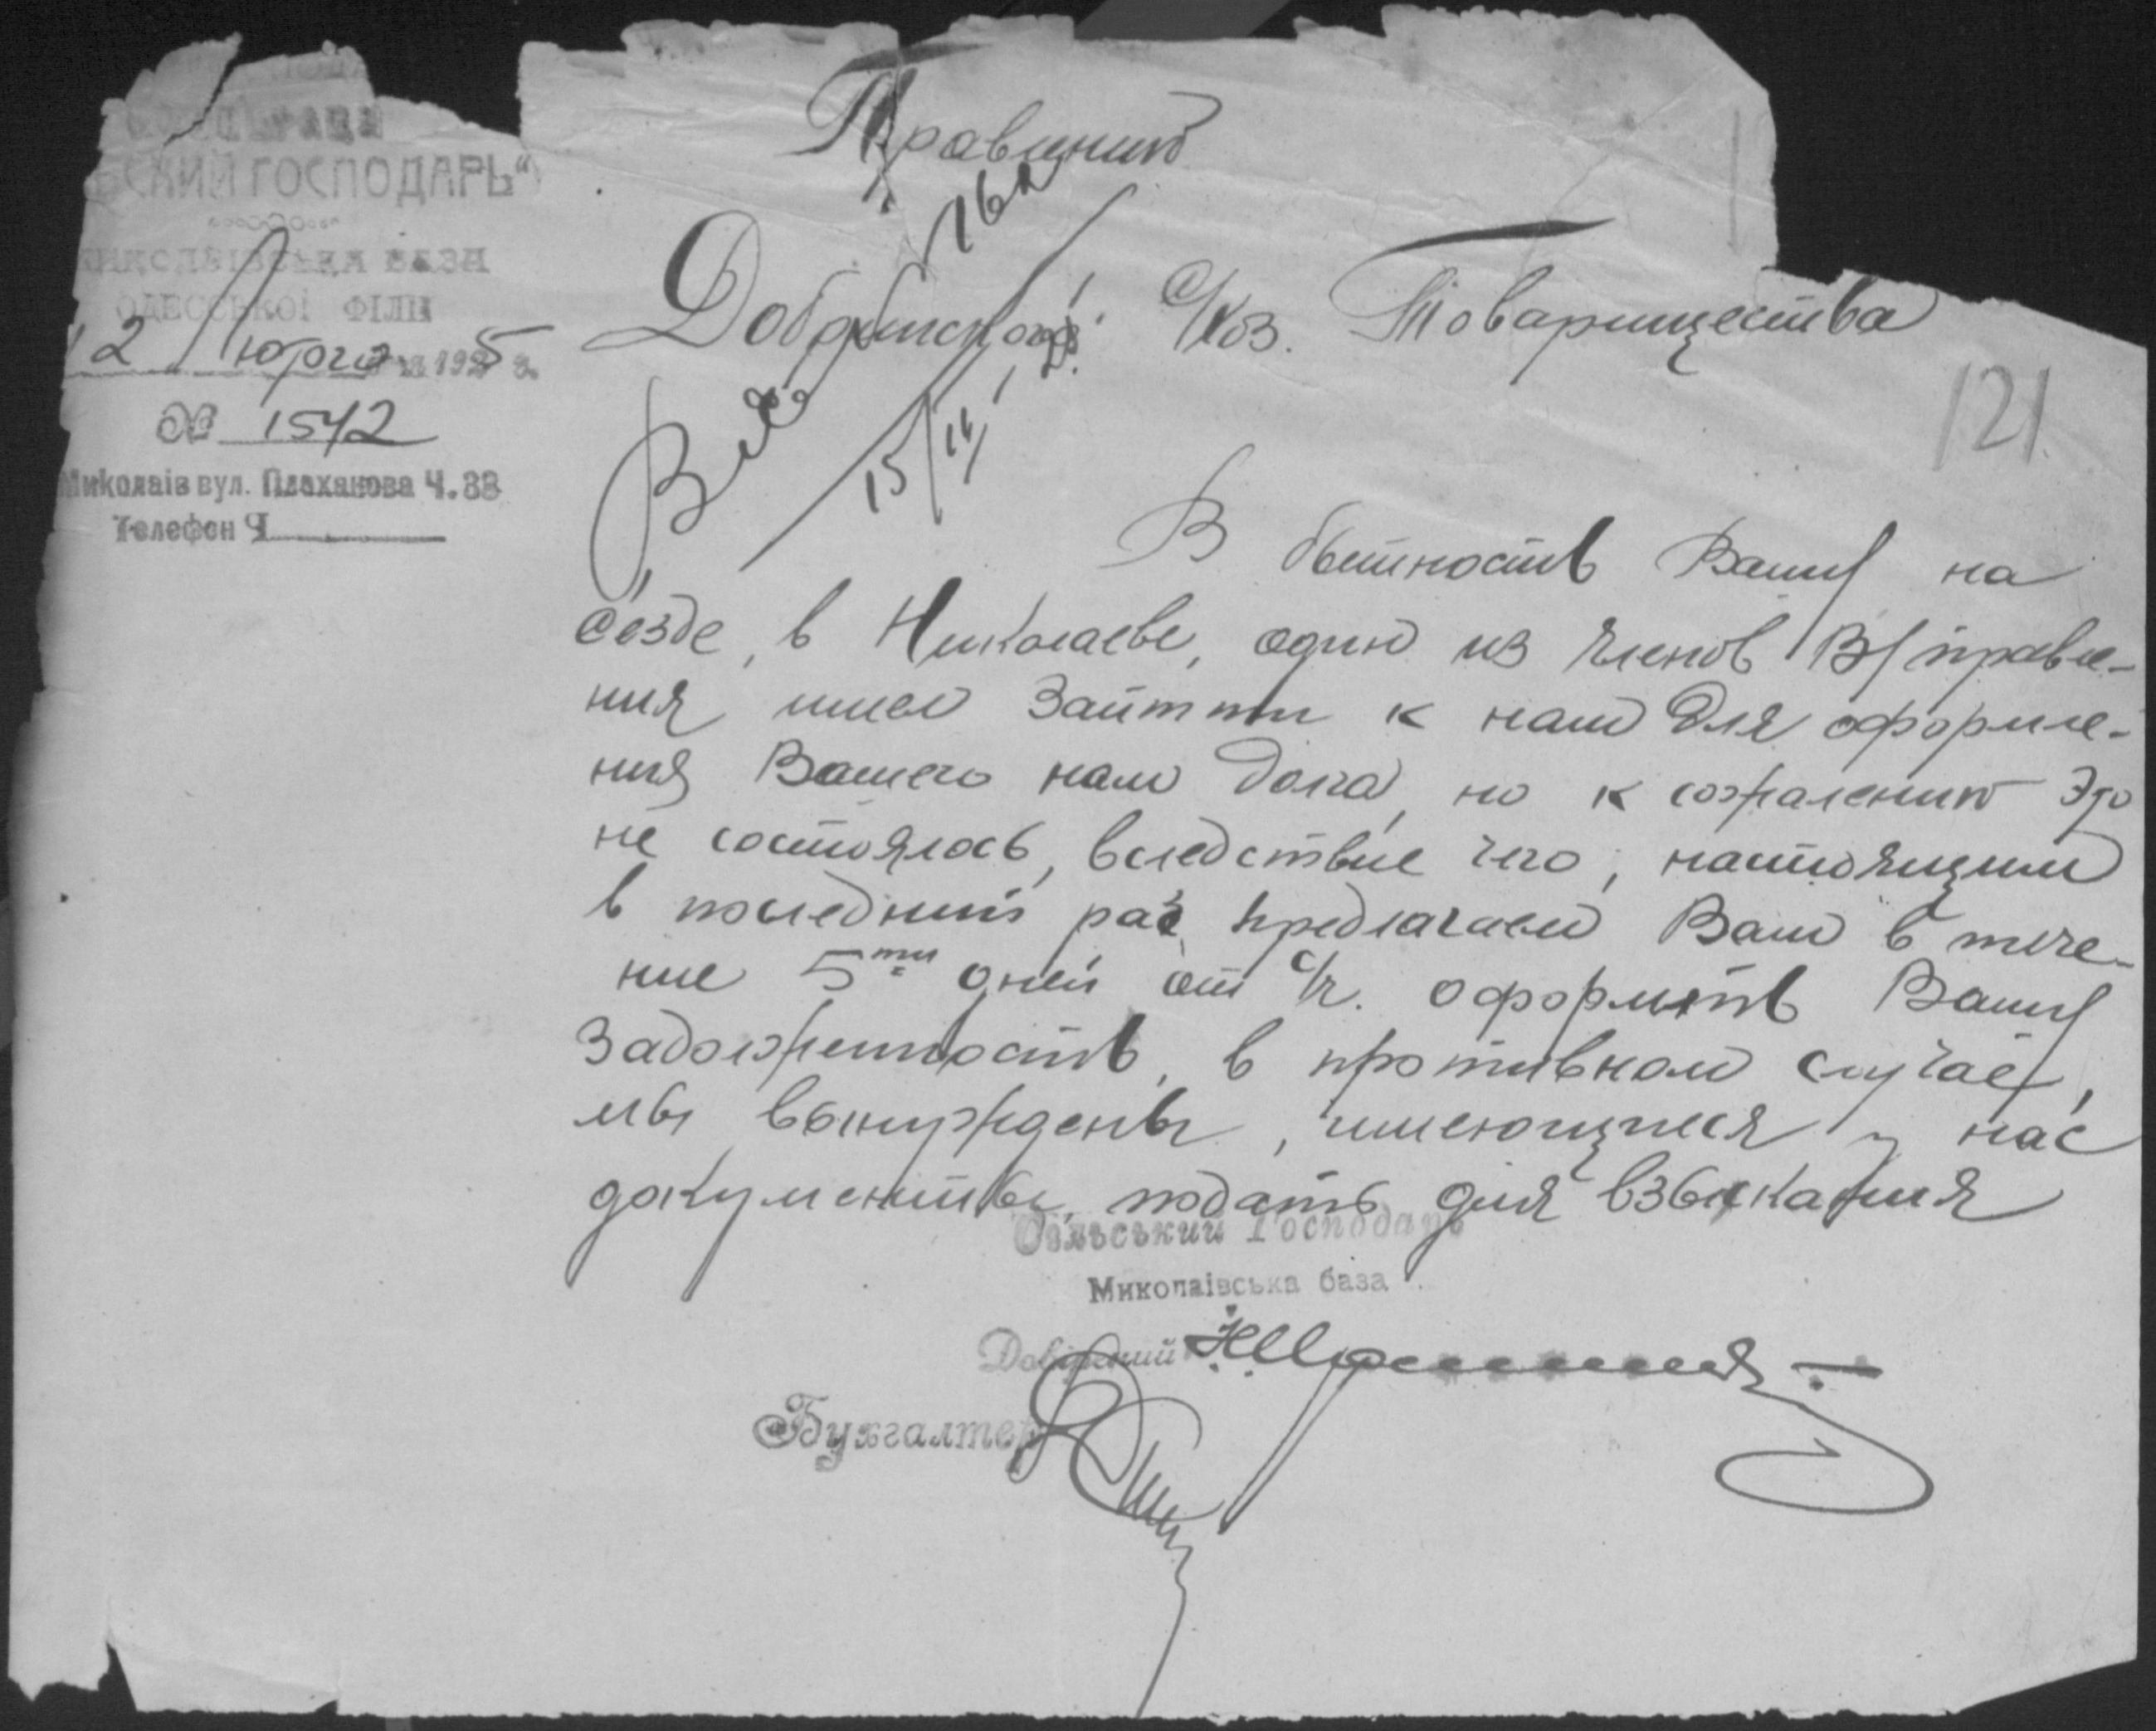 СКИЙ ГОСПОДАРЬ"
МИКОЛАІВСЬКА БАЗА
ОДЕССЬКОІ ФІЛІІ
12 Лютого 1925 г.
№ 1542
Миколаів вул. Плеханова Ч. 33
Телефон Ч
Правлению
Добринского С/Хоз. Товарищества
15/II
121
В бытность Вашу на
сезде, в Николаеве, один из членов В/правле-
ния имел зайти к нам для оформле-
ния Вашего нам долга, но к сожалению это
не состоялось, вследствие чего, настоящим
в последний раз предлагаем Вам в тече-
ние 5ти дней от с/ч. оформить Вашу
задолженность, в противном случае,
мы вынуждены, имеющиеся у нас
документы, подать для взыскания
Сільський Господарь
Миколаівська база
Довірений
Бухгалтер